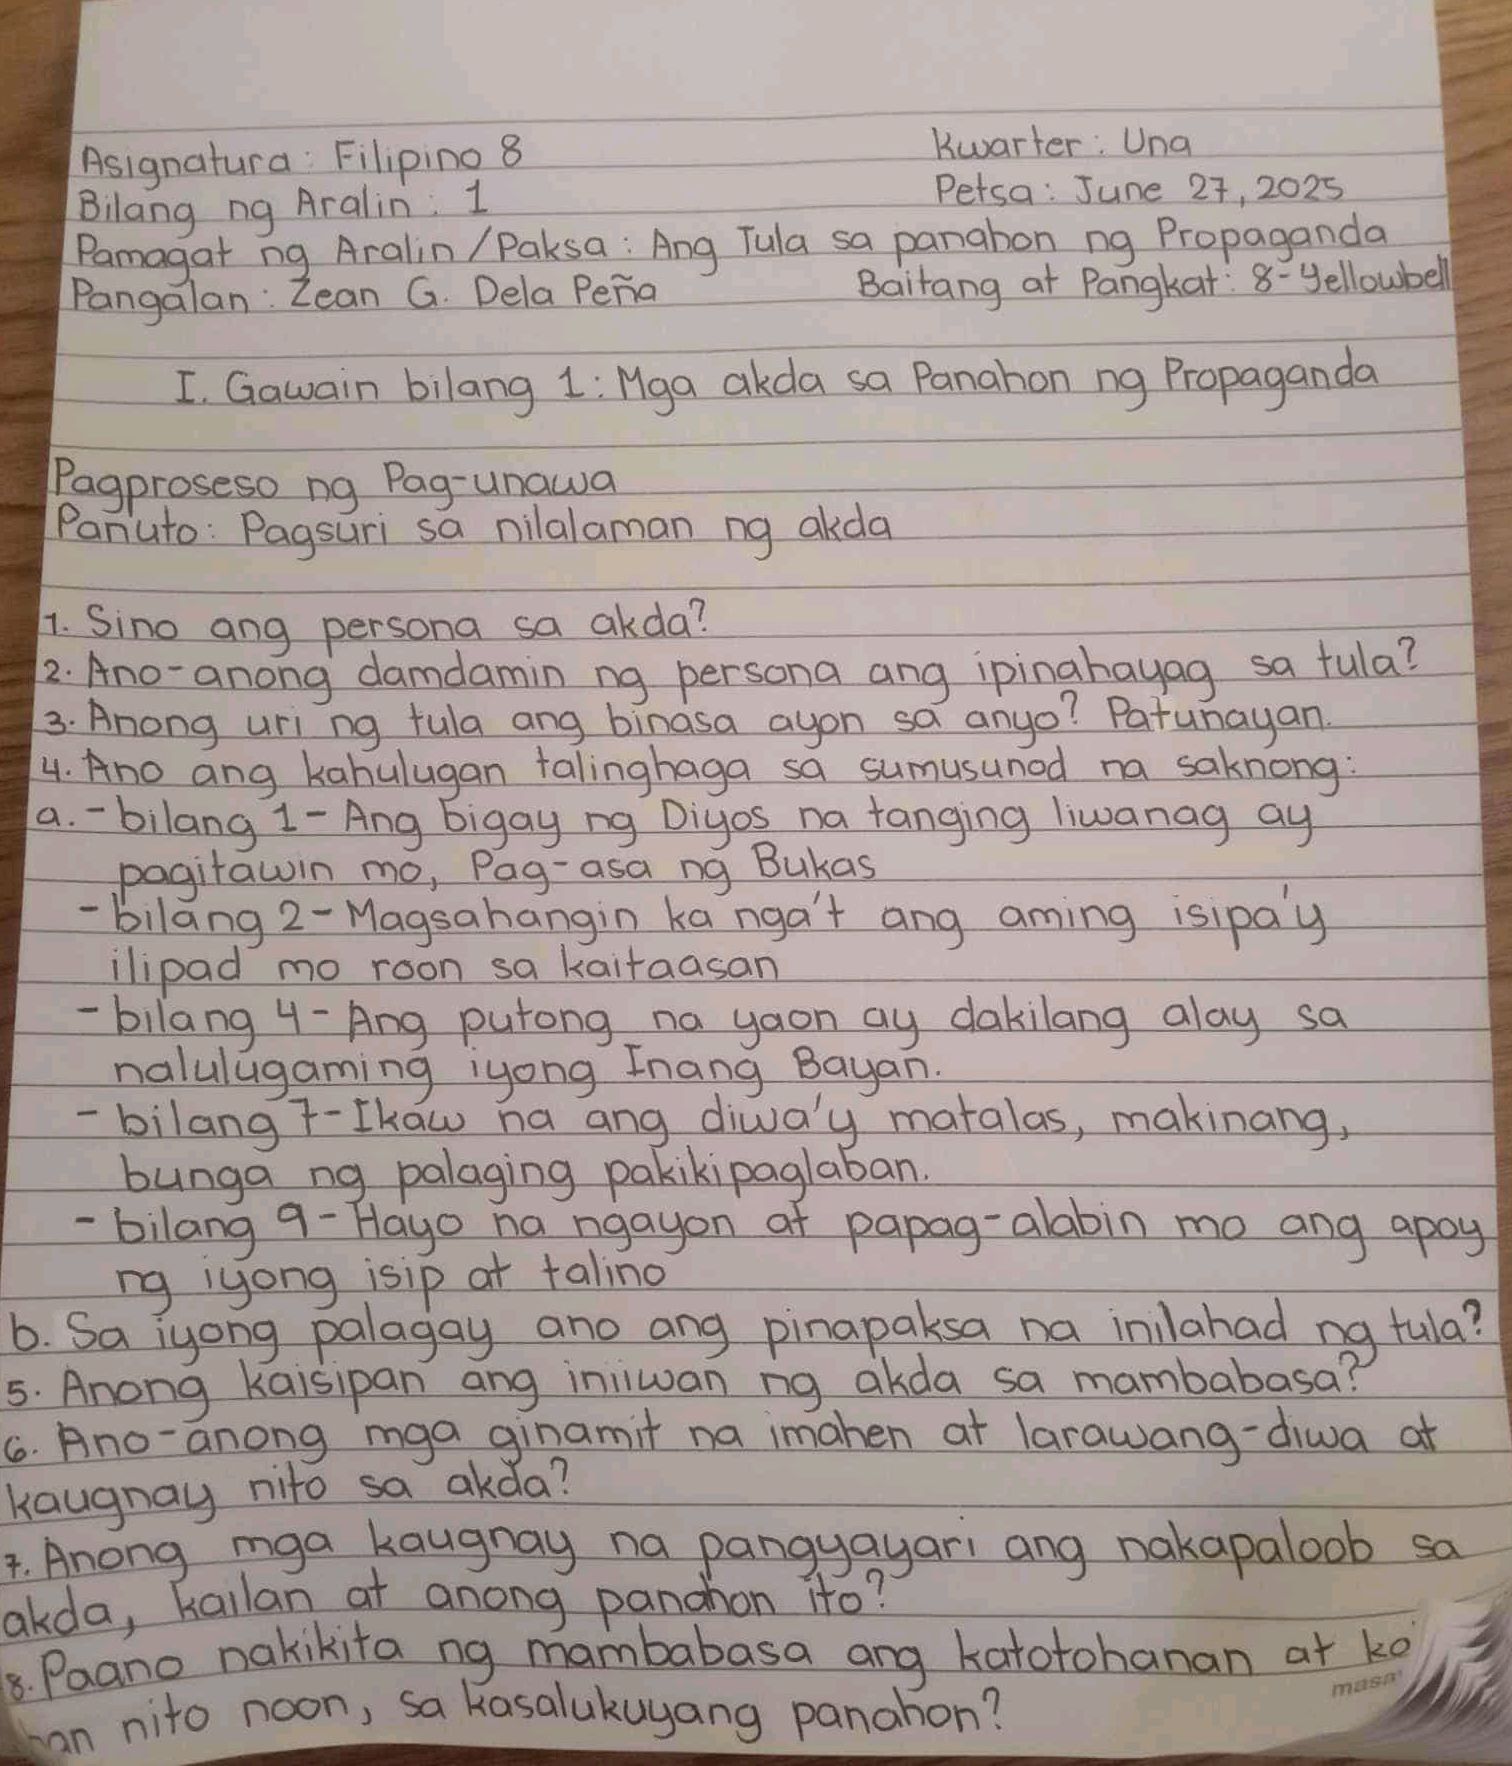 Asignatura: Filipino 8 Kwarter: Una
Bilang ng Aralin: 1 Petsa: June 27, 2025
Pamagat ng Aralin/Paksa: Ang Tula sa panahon ng Propaganda
Pangalan: Zean G. Dela Peña Baitang at Pangkat: 8-Yellowbell
I. Gawain bilang 1: Mga akda sa Panahon ng Propaganda
Pagproseso ng Pag-unawa
Panuto: Pagsuri sa nilalaman ng akda
1. Sino ang persona sa akda?
2. Ano-anong damdamin ng persona ang ipinahayag sa tula?
3. Anong uri ng tula ang binasa ayon sa anyo? Patunayan.
4. Ano ang kahulugan talinghaga sa sumusunod na saknong:
a. - bilang 1 - Ang bigay ng Diyos na tanging liwanag ay
pagitawin mo, Pag-asa ng Bukas
- bilang 2 - Magsahangin ka nga't ang aming isipa'y
ilipad mo roon sa kaitaasan
- bilang 4 - Ang putong na yaon ay dakilang alay sa
nalulugaming iyong Inang Bayan.
- bilang 7 - Ikaw na ang diwa'y matalas, makinang,
bunga ng palaging pakikipaglaban.
- bilang 9 - Hayo na ngayon at papag-alabin mo ang apoy
ng iyong isip at talino
b. Sa iyong palagay ano ang pinapaksa na inilahad ng tula?
5. Anong kaisipan ang iniiwan ng akda sa mambabasa?
6. Ano-anong mga ginamit na imahen at larawang-diwa at
kaugnay nito sa akda?
7. Anong mga kaugnay na pangyayari ang nakapaloob sa
akda, kailan at anong panahon ito?
8. Paano nakikita ng mambabasa ang katotohanan at
nito noon, sa kasalukuyang panahon?